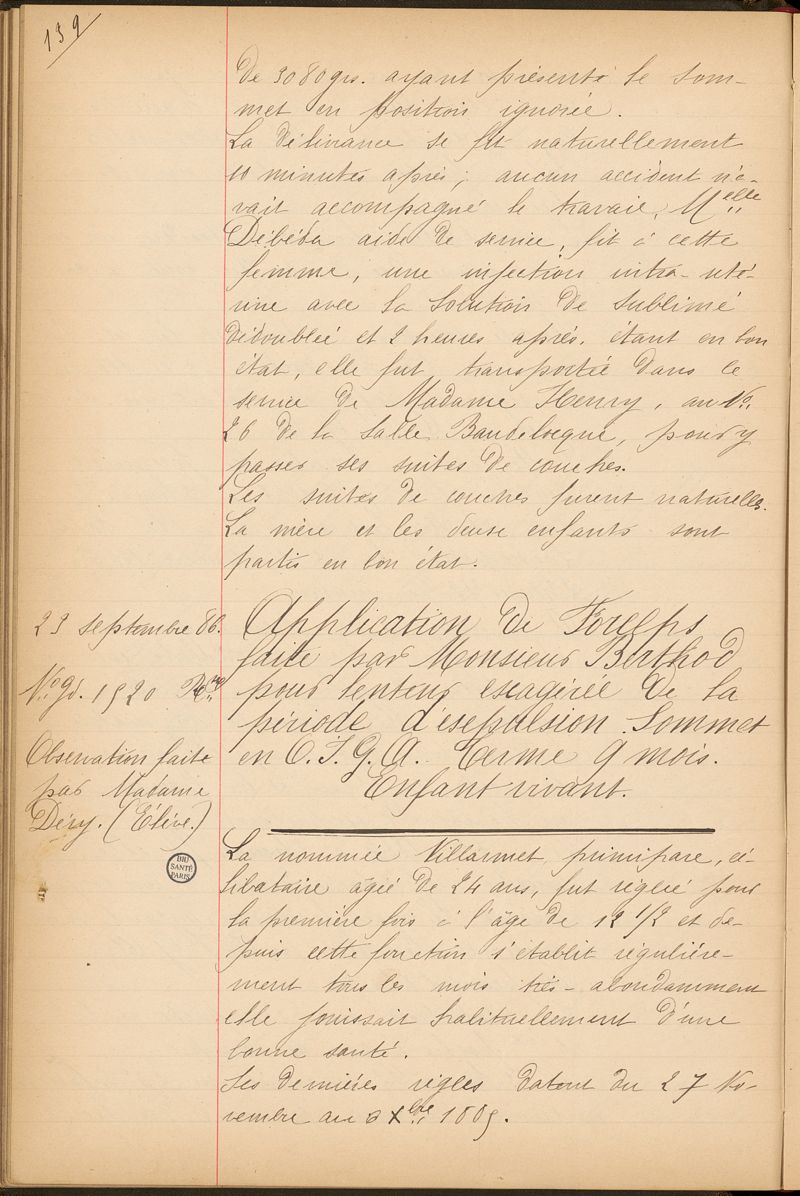 139
De 3080grs. ayant présenté le som-
met en position ignorée.
La délivrance se fit naturellement
10 minutes après; aucun accident n'a-
vait accompagné le travail, Melle
Débéda aide de service, fit à cette
femme, une injection intra-uté-
rine avec la solution de sublimé
dédoublée et 2 heures après. étant en bon
état, elle fut transportée dans le
service de Madame Henry, au No
26 de la salle Baudelocque, pour y
passer ses suites de couches.
Les suites de couches furent naturelles.
La mère et les deux enfants sont
partis en bon état.
23 septembre 86.
No Gd. 1520
Observation faite
par Madame
Déry. (Élève.)
Application de Forceps
faite par Monsieur Berthod
pour lenteur exagérée de la
période d'expulsion. Sommet
en O.I.G.A. Terme 9 mois.
Enfant vivant.
BIU
SANTÉ
PARIS
La nommée Villarmet, primipare, cé-
libataire âgée de 24 ans, fut réglée pour
la première fois à l'âge de 12 1/2 et de-
puis cette fonction s'établit régulière-
ment tous les mois très-abondamment
elle jouissait habituellement d'une
bonne santé.
Ses dernières règles datent du 27 No-
vembre au 3 Xbre 1885.